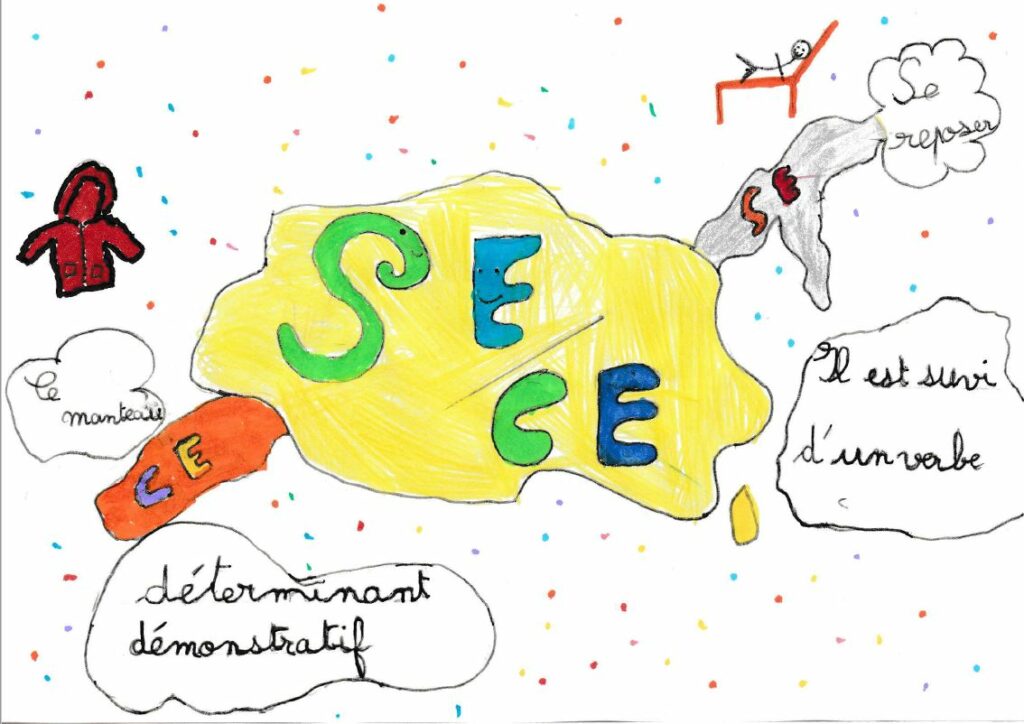 Se
reposer
SE
SE
CE
Ce
manteau
CE
Il est suivi
d'un verbe
déterminant
démonstratif